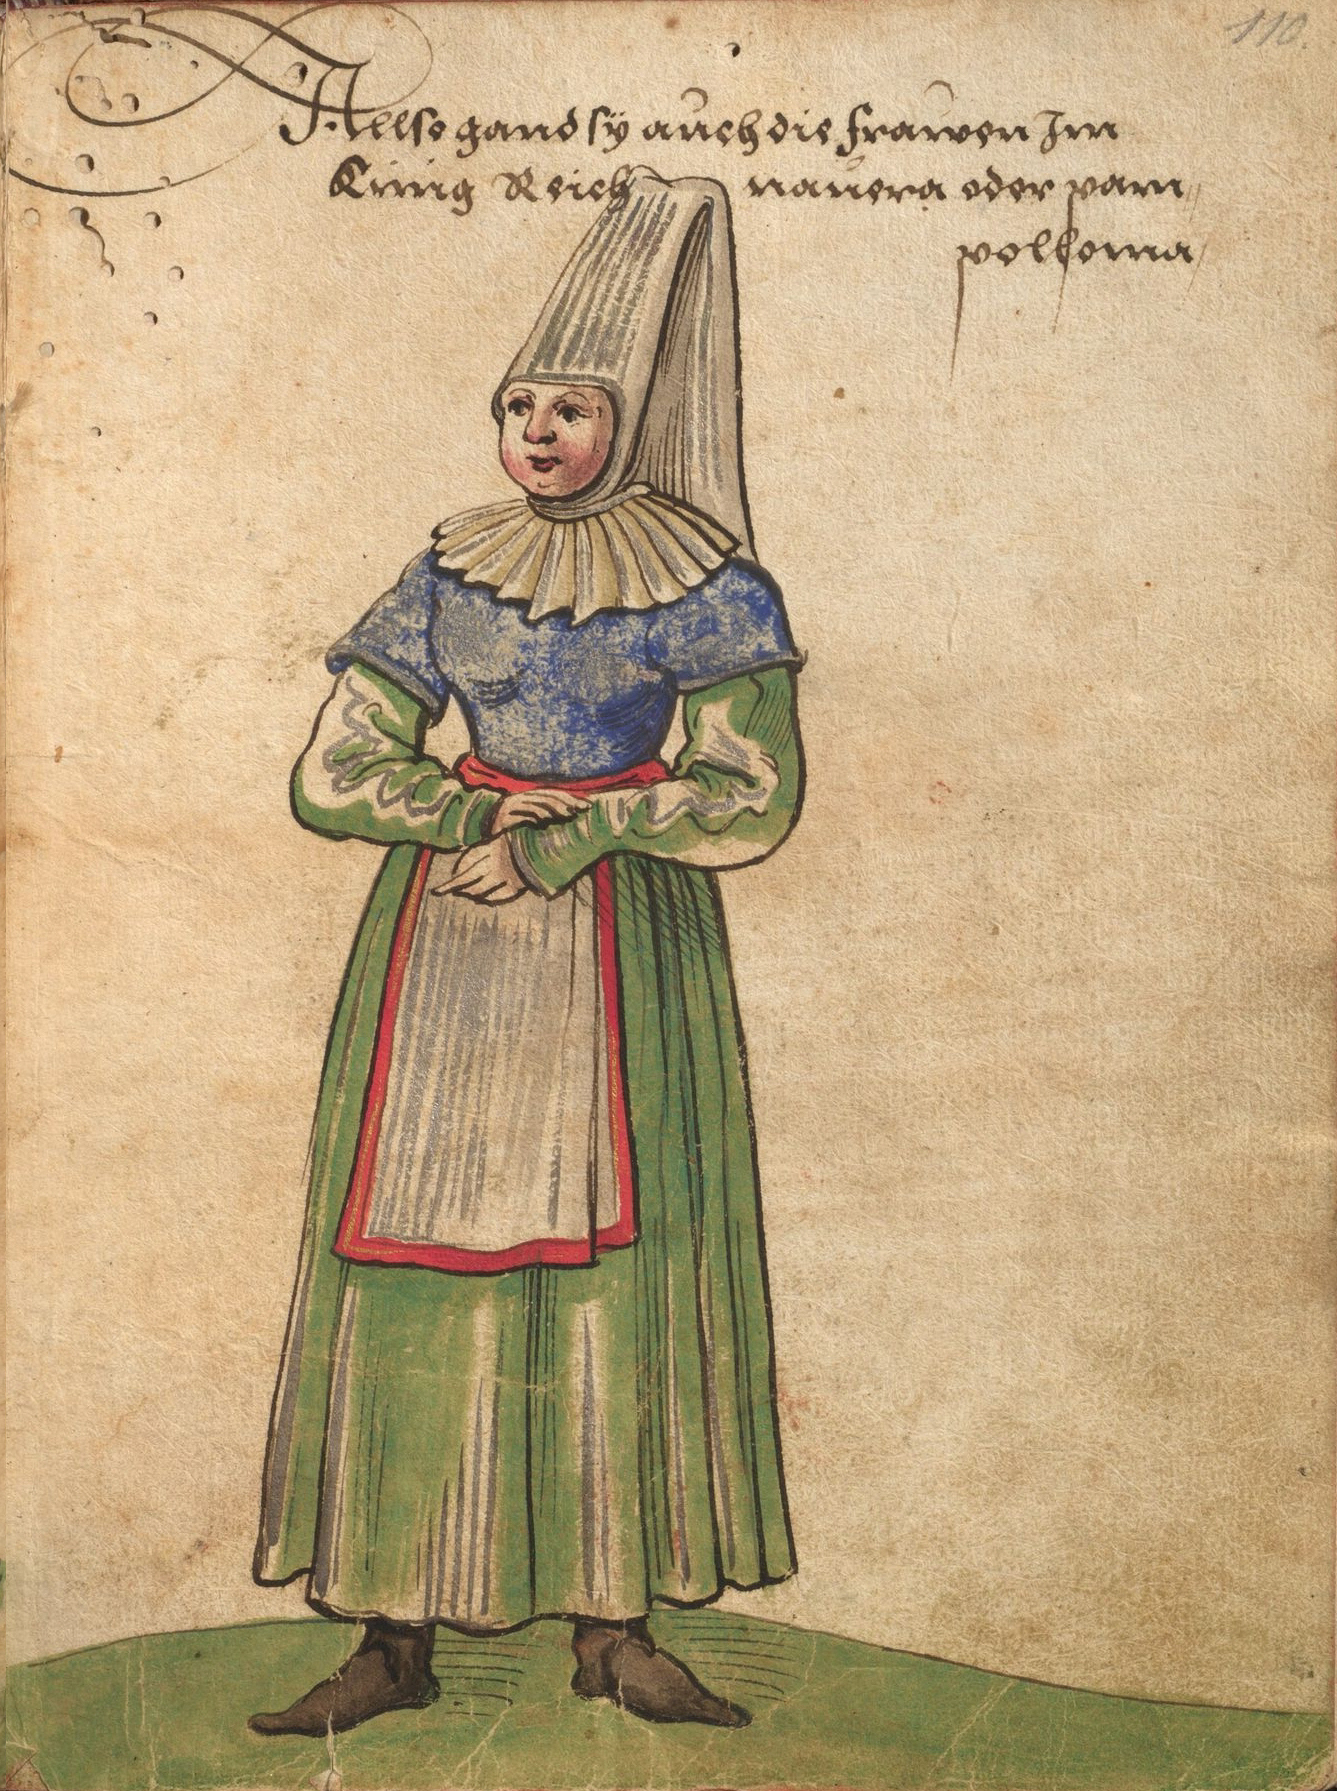 110.
Allso gand sÿ auch die frawen Im
Künig Reich nauera oder pam
polloma